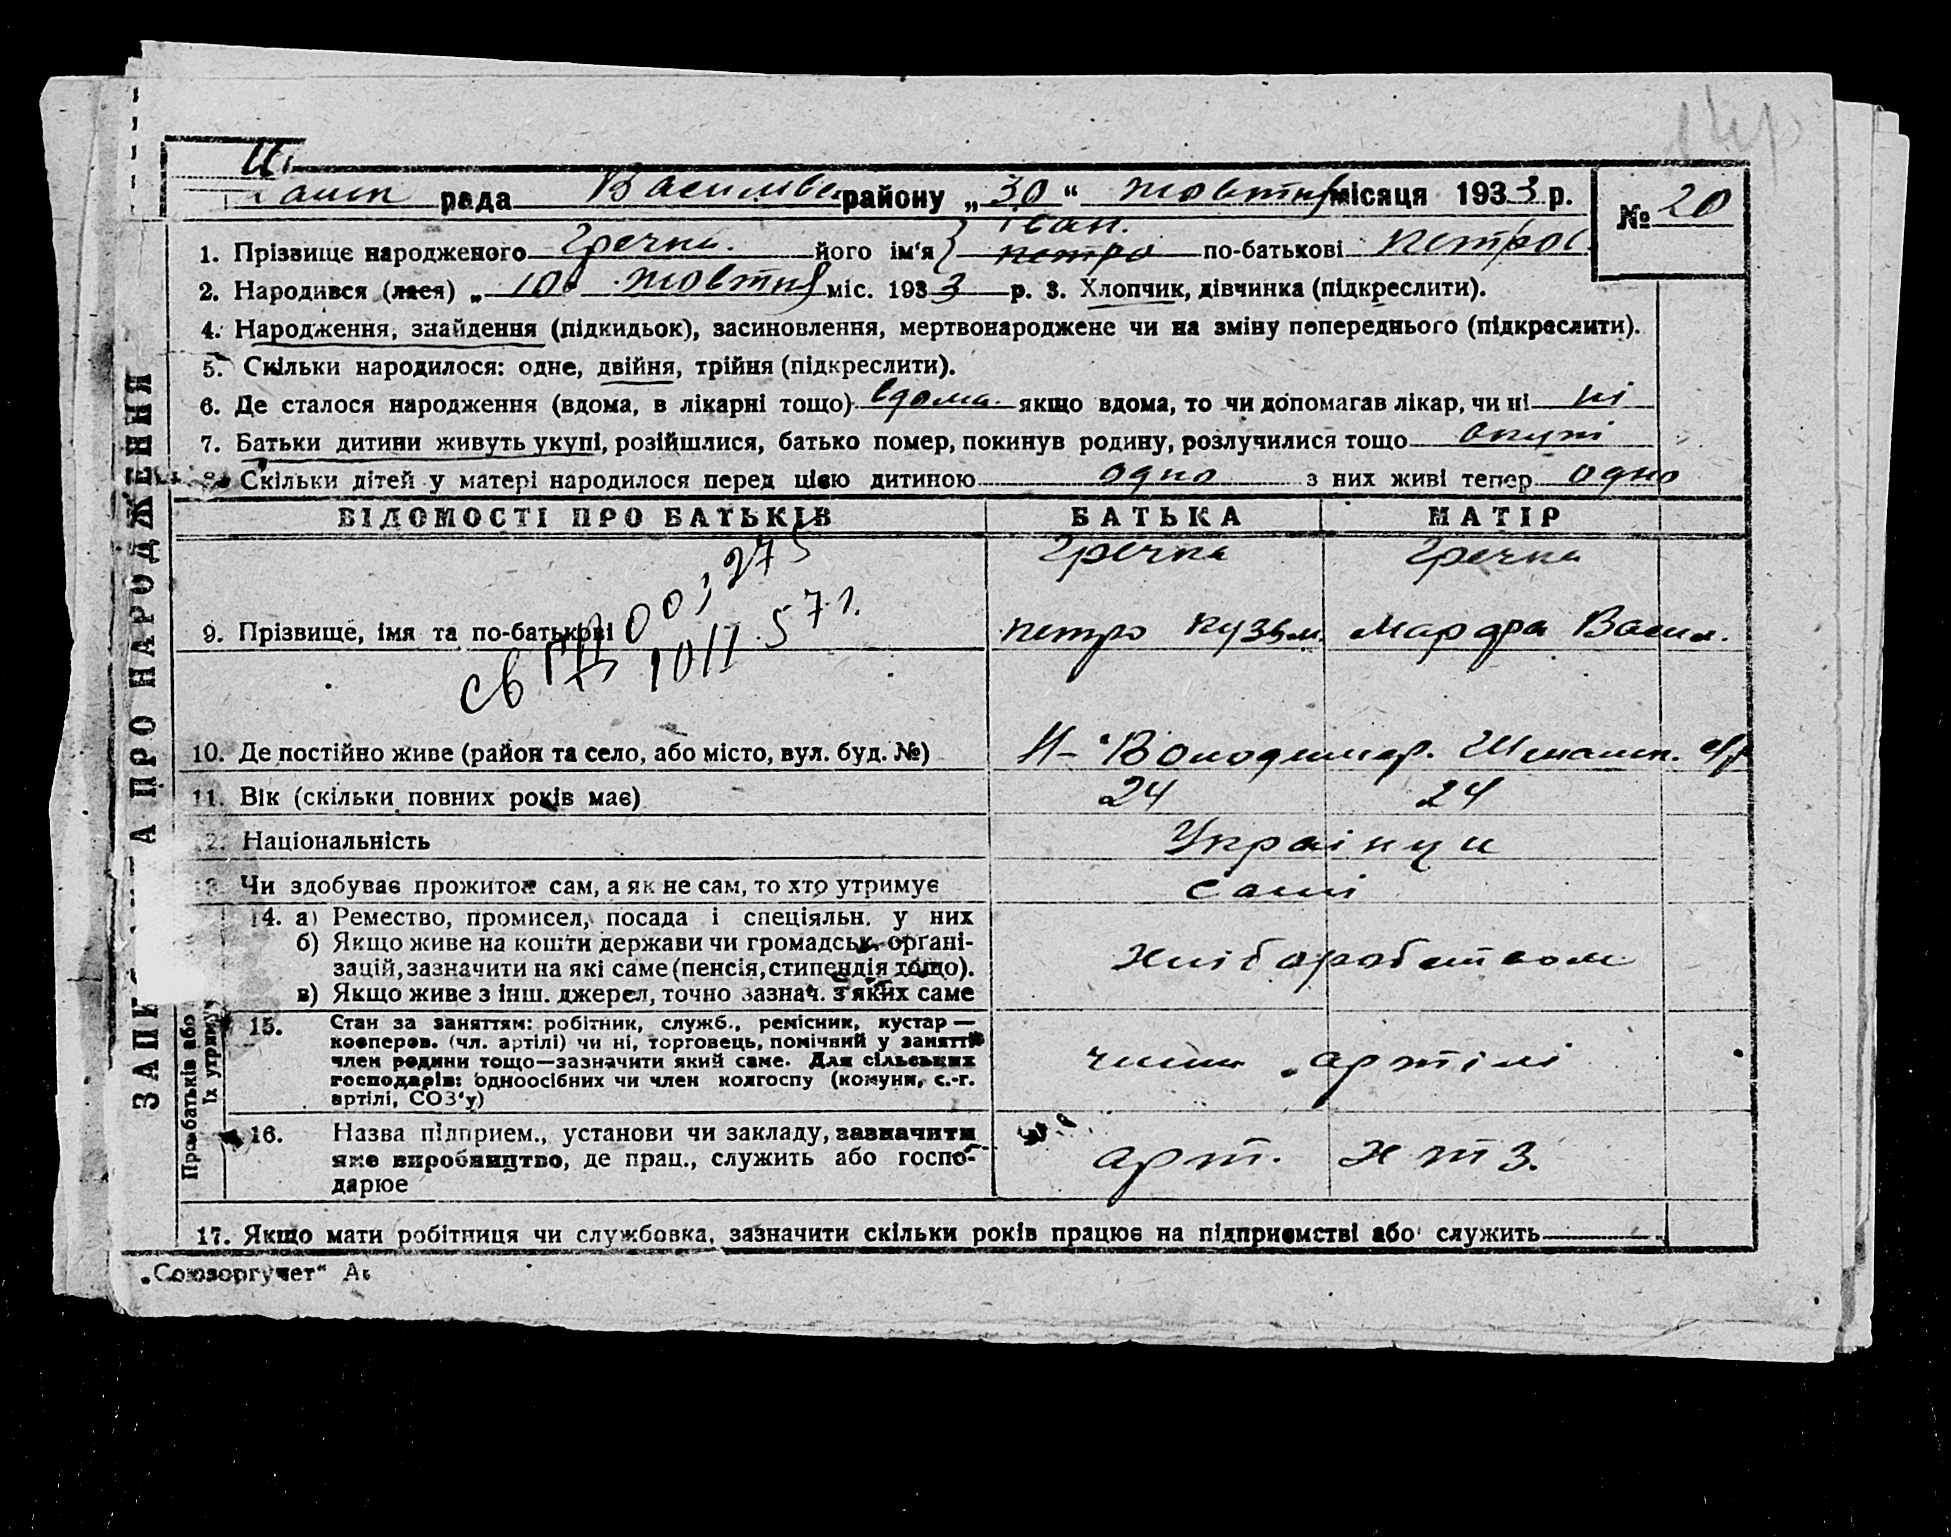 рада Васильев району „30“ жовтня місяця 1933 р.
№ 20
1. Прізвище народженого Гречка. його ім'я } Іван. петро по-батькові петров.
2. Народився (лася) „ 10 жовтня міс. 1933 р. 3. Хлопчик, дівчинка (підкреслити).
4. Народження, знайдення (підкидьок), засиновлення, мертвонароджене чи на зміну попереднього (підкреслити).
5. Скільки народилося: одне, двійня, трійня (підкреслити).
6. Де сталося народження (вдома, в лікарні тощо) вдома. якщо вдома, то чи допомагав лікар, чи ні ні
7. Батьки дитини живуть укупі, розійшлися, батько помер, покинув родину, розлучилися тощо вкупі
8. Скільки дітей у матері народилося перед цією дитиною одно з них живі тепер одно
ВІДОМОСТІ ПРО БАТЬКІВ БАТЬКА МАТІР
Гречка Гречка
9. Прізвище, імя та по-батькові петро кузьм. Марфа Васил.
10. Де постійно живе (район та село, або місто, вул. буд. №) Н-Володимир.
11. Вік (скільки повних років має) 24 24
12. Національність Українци
13. Чи здобуває прожиток сам, а як не сам, то хто утримує самі
14. а) Ремество, промисел, посада і спеціяльн. у них
б) Якщо живе на кошти держави чи громадськ. органі-
зацій, зазначити на які саме (пенсія, стипендія тощо).
в) Якщо живе з інш. джерел, точно зазнач. з яких саме
хліборобством
15. Стан за заняттям: робітник, служб., ремісник, кустар —
коопéров. (чл. артілі) чи ні, торговець, помічний у занятті
член родини тощо—зазначити який саме. Для сільських
господарів: одноосібних чи член колгоспу (комуни, с.-г.
артілі, СОЗ'у)
члени артілі
16. Назва підприєм., установи чи закладу, зазначити
яке виробництво, де прац., служить або госпо-
дарює
арт. ХТЗ.
17. Якщо мати робітниця чи службовка, зазначити скільки років працює на підприємстві або служить
„Союзоргучет“
ЗАПИС АКТА ПРО НАРОДЖЕННЯ
Про батьків або
їх утримув